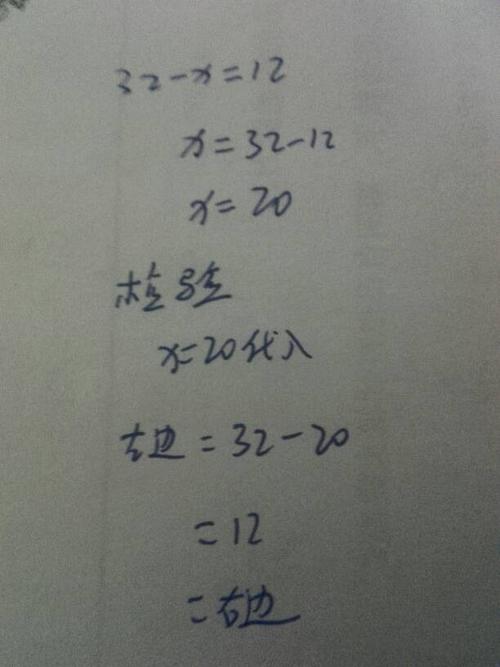 32-x=12
x=32-12
x=20
检验
x=20代入
左边=32-20
=12
=右边